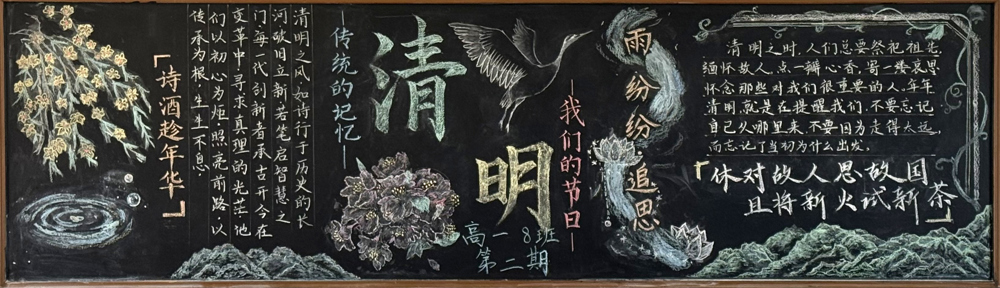 「诗酒趁年华」
清明之风如诗行于历史的长
河破旧立新若笔启智慧之
门每一代创新者承古开今在
变革中寻求真理的光芒他
们以初心为炬照亮前路,以
传承为根,生生不息
—传统的记忆—
清明
—我们的节日—
高一8班
第二期
雨纷纷追思
清明之时,人们总要祭祀祖先,
缅怀故人,点一瓣心香,寄一缕哀思
怀念那些对我们很重要的人,年年
清明,就是在提醒我们,不要忘记
自己从哪里来,不要因为走得太远,
而忘记了当初为什么出发。
「休对故人思故国
且将新火试新茶」